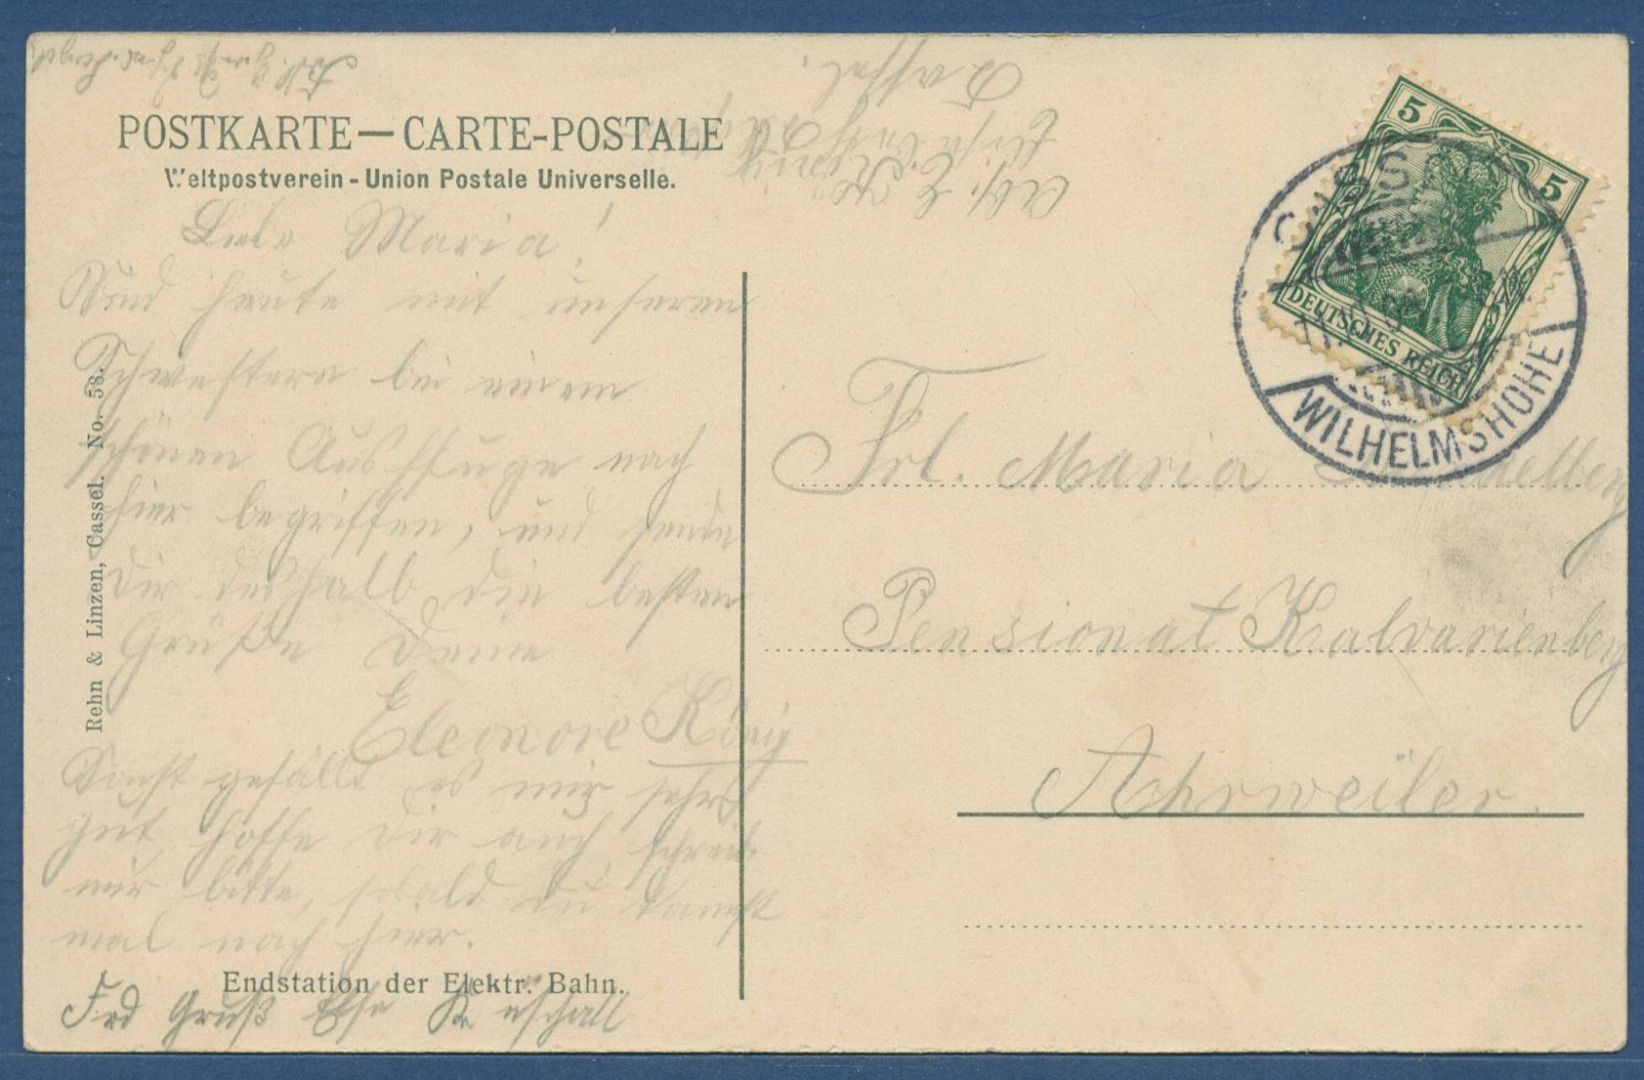 POSTKARTE — CARTE-POSTALE
Weltpostverein - Union Postale Universelle.
Liebe Maria!
Sind heute mit unseren
Schwestern bei einem
schönen Ausfluge nach
hier begriffen, und sende
Dir deshalb die besten
Grüße Deine
Eleonore König
Sonst gefällt es mir sehr
gut, hoffe Dir auch, schreib
mir bitte, sobald du kannst
mal nach hier.
Endstation der Elektr. Bahn.
Frd Gruß Else
Rehn & Linzen, Cassel. No. 58.
Abs. E. König
Cassel.
5 5
DEUTSCHES REICH
CASSEL
WILHELMSHÖHE
Frl. Maria
Pensionat Kalvarienberg
Ahrweiler.